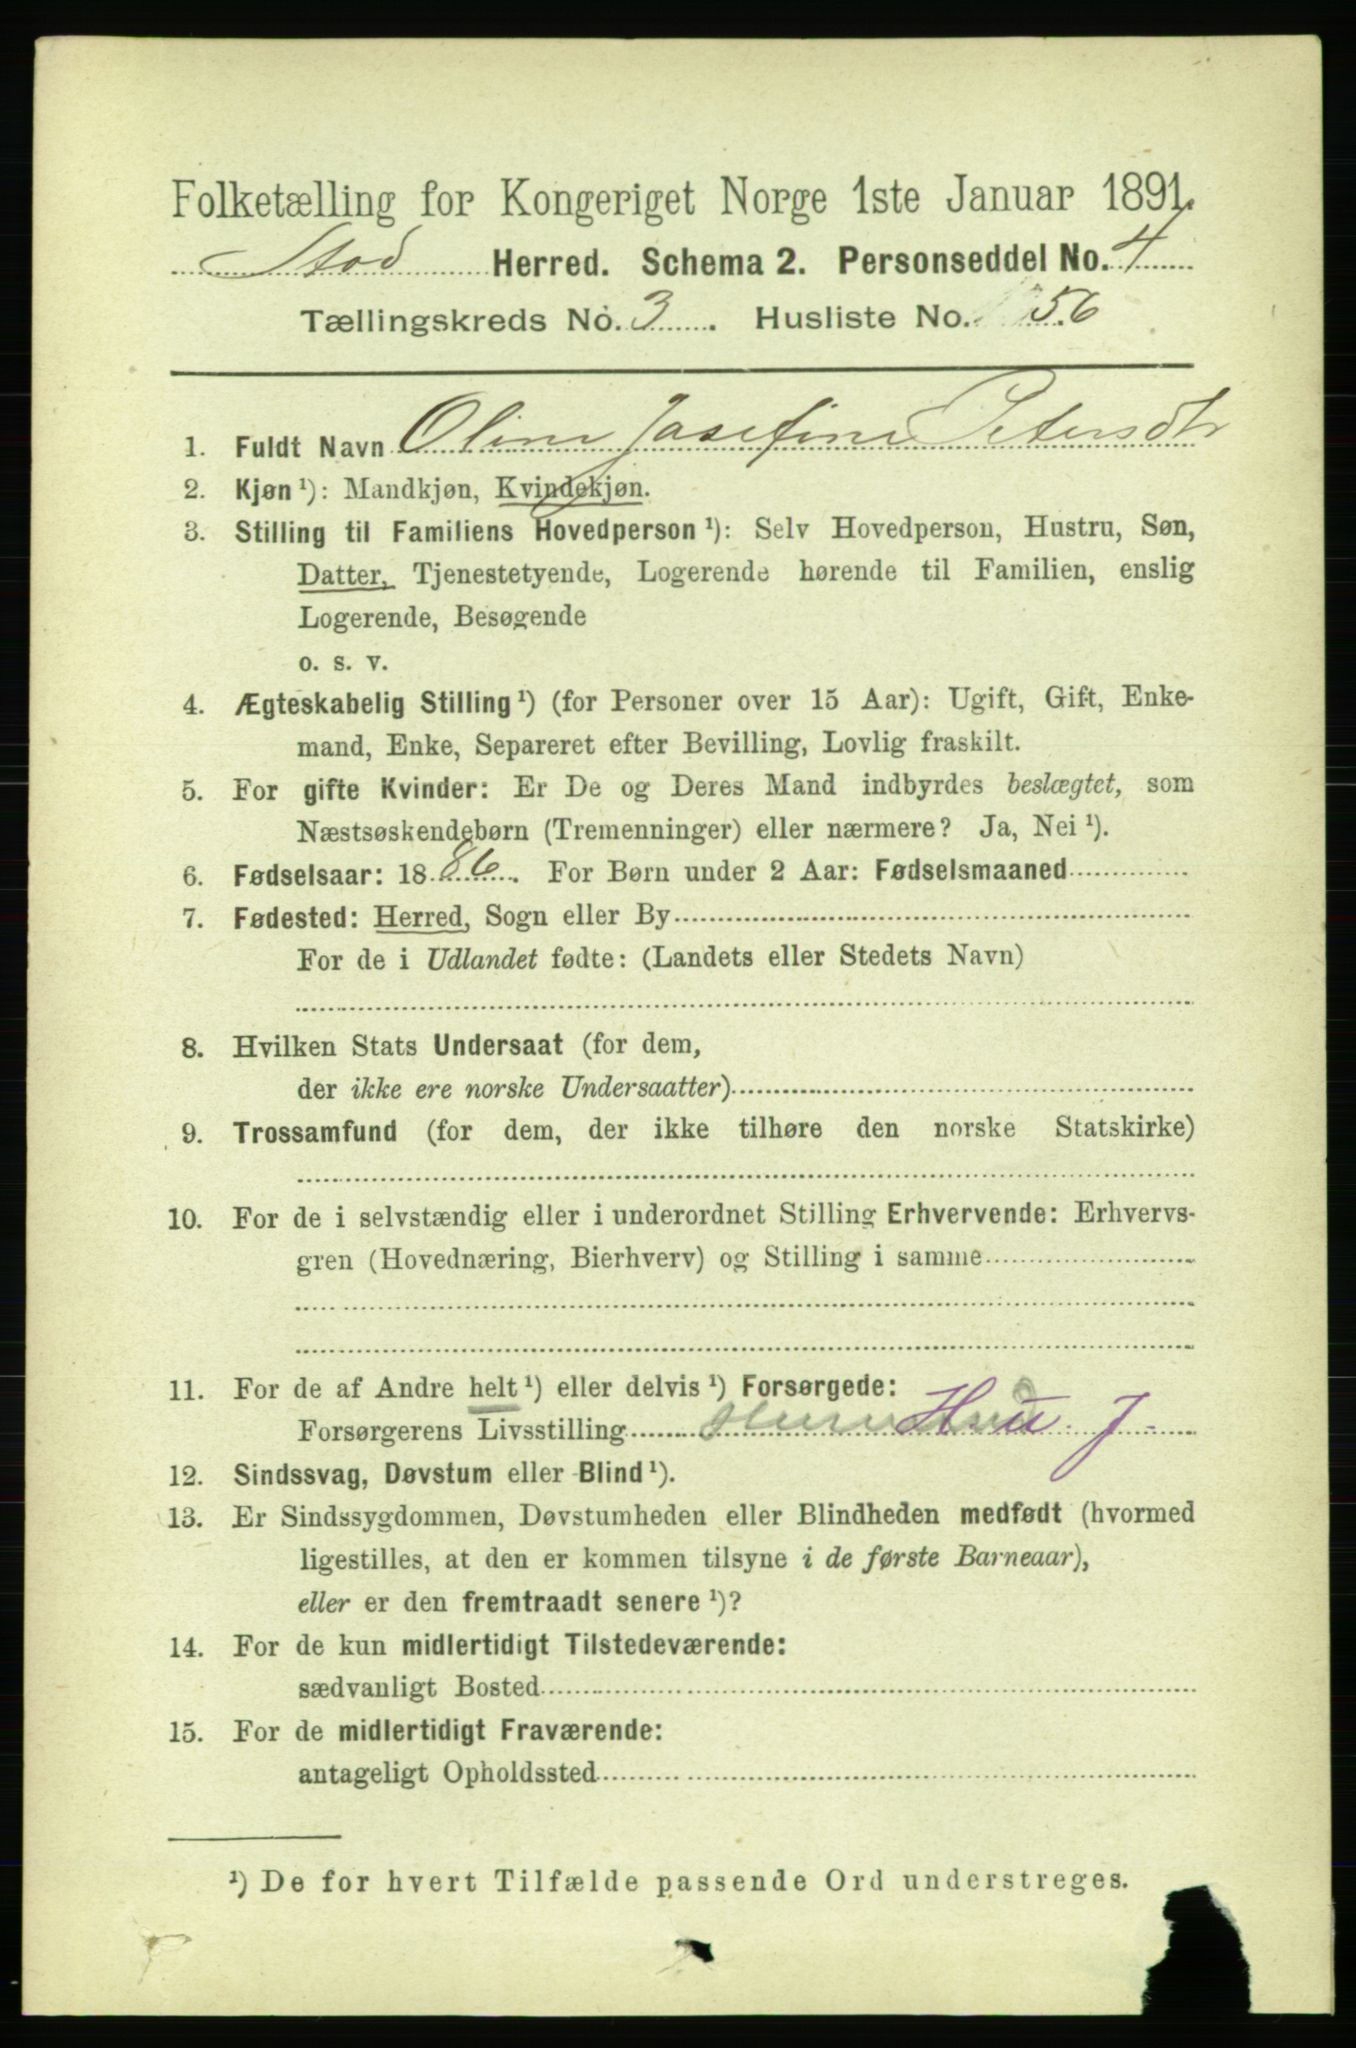 Folketælling for Kongeriget Norge 1ste Januar 1891.
Stod Herred. Schema 2. Personseddel No. 4
Tællingskreds No. 3. Husliste No. 56
1. Fuldt Navn Oline Josefine Petersdtr
2. Kjøn ¹): Mandkjøn, Kvindekjøn.
3. Stilling til Familiens Hovedperson ¹): Selv Hovedperson, Hustru, Søn,
Datter, Tjenestetyende, Logerende hørende til Familien, enslig
Logerende, Besøgende
o. s. v.
4. Ægteskabelig Stilling ¹) (for Personer over 15 Aar): Ugift, Gift, Enke-
mand, Enke, Separeret efter Bevilling, Lovlig fraskilt.
5. For gifte Kvinder: Er De og Deres Mand indbyrdes beslægtet, som
Næstsøskendebørn (Tremenninger) eller nærmere? Ja, Nei ¹).
6. Fødselsaar: 1886. For Børn under 2 Aar: Fødselsmaaned
7. Fødested: Herred, Sogn eller By
For de i Udlandet fødte: (Landets eller Stedets Navn)
8. Hvilken Stats Undersaat (for dem,
der ikke ere norske Undersaatter)
9. Trossamfund (for dem, der ikke tilhøre den norske Statskirke)
10. For de i selvstændig eller i underordnet Stilling Erhvervende: Erhvervs-
gren (Hovednæring, Bierhverv) og Stilling i samme
11. For de af Andre helt ¹) eller delvis ¹) Forsørgede:
Forsørgerens Livsstilling Hsu. J.
12. Sindssvag, Døvstum eller Blind ¹).
13. Er Sindssygdommen, Døvstumheden eller Blindheden medfødt (hvormed
ligestilles, at den er kommen tilsyne i de første Barneaar),
eller er den fremtraadt senere ¹)?
14. For de kun midlertidigt Tilstedeværende:
sædvanligt Bosted
15. For de midlertidigt Fraværende:
antageligt Opholdssted
¹) De for hvert Tilfælde passende Ord understreges.